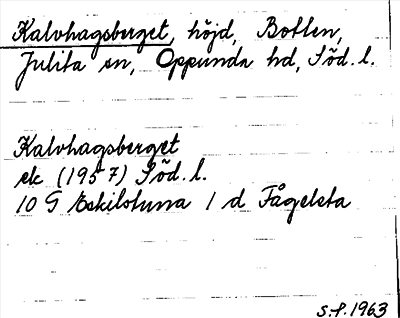 Kalvhagsberget, höjd, Botten,
Julita sn, Oppunda hd, Söd. l.
Kalvhagsberget
ek (1957) Söd. l.
10 G Eskilstuna 1 d Fågelsta
S.P. 1963